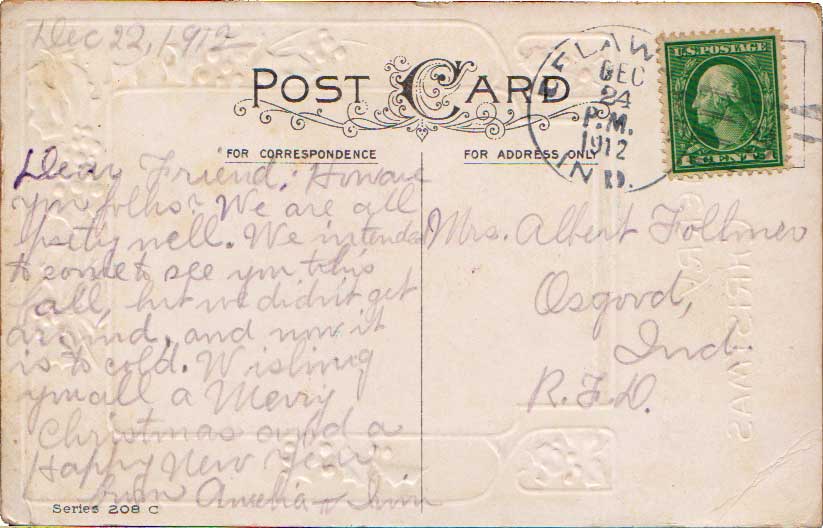 Dec 22, 1912
POST CARD
DELAW
DEC
24
P.M.
1912
IND.
U.S. POSTAGE
1 CENTS 1
FOR CORRESPONDENCE
FOR ADDRESS ONLY
Dear Friend: How are
you folks? We are all
prety well. We intended
to come to see you this
fall, but we didn't get
around, and now it
is to cold. Wishing
you all a Merry
Christmas and a
Happy New Year
from Amelia + Irvin
Mrs. Albert Follmer
Osgood,
Ind.
R.F.D.
Series 208 C